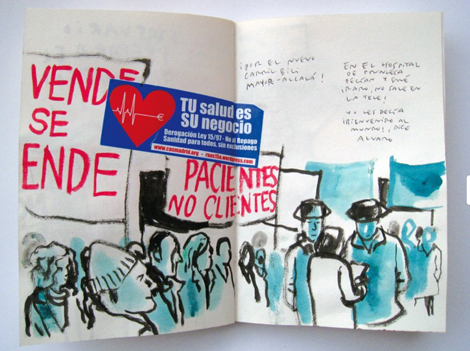 VENDE
SE
ENDE
TU salud es
SU negocio
Derogación Ley 15/97 - No al Repago
Sanidad para todos, sin exclusiones
www.casmadrid.org -
PACIENTES
NO CLIENTES
¡POR EL NUEVO
CARRIL BICI
MAYOR-ALCALÁ!
EN EL HOSPITAL
DE
DECÍAN Y QUÉ
PARO, NO SALE EN
LA TELE!
YO LES DECÍA
¡BIENVENIDO AL
MUNDO!, DICE
ALVARO